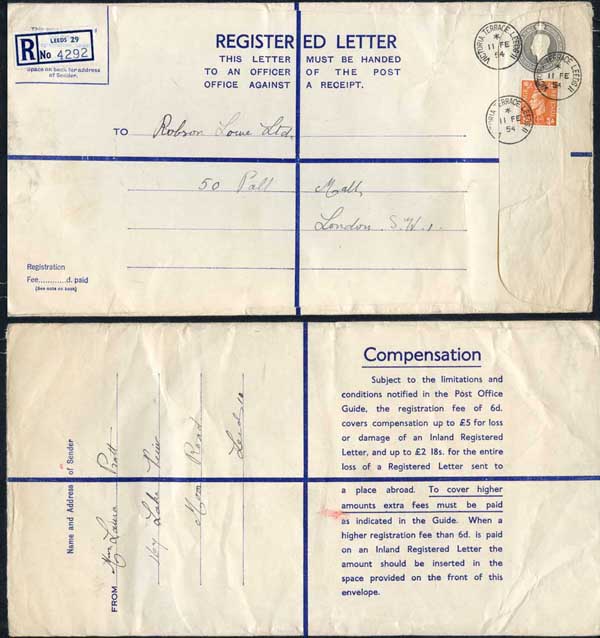 R
LEEDS 29
No 4292
Space on back for address
of Sender.
REGISTERED LETTER
THIS LETTER MUST BE HANDED
TO AN OFFICER OF THE POST
OFFICE AGAINST A RECEIPT.
VICTORIA TERRACE, LEEDS 11
11 FE
54
VICTORIA TERRACE, LEEDS 11
11 FE
54
VICTORIA TERRACE, LEEDS 11
11 FE
54
TO Robson Lowe Ltd.
50 Pall Mall,
London. S.W.1.
Registration
Fee............d. paid
(See note on back)
Name and Address of Sender
FROM Laura Pratt
Lake View
Road
Leeds
Compensation
Subject to the limitations and
conditions notified in the Post Office
Guide, the registration fee of 6d.
covers compensation up to £5 for loss
or damage of an Inland Registered
Letter, and up to £2 18s. for the entire
loss of a Registered Letter sent to
a place abroad. To cover higher
amounts extra fees must be paid
as indicated in the Guide. When a
higher registration fee than 6d. is paid
on an Inland Registered Letter the
amount should be inserted in the
space provided on the front of this
envelope.